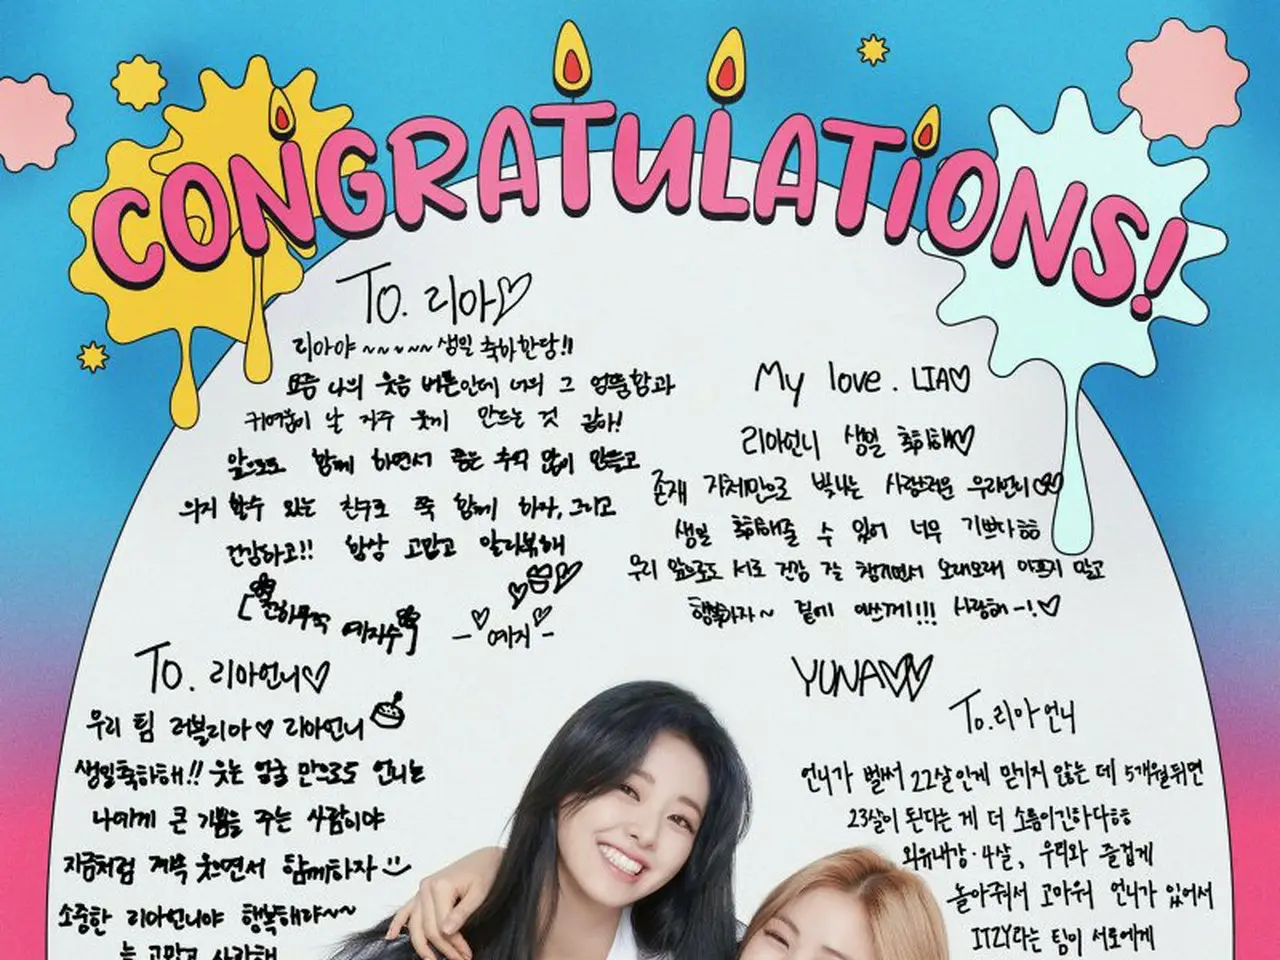 CONGRATULATIONS!
To. 리아♡
리아야~~~~~생일 축하한당!!
요즘 나의 웃음 버튼인데 너의 그 엉뚱함과
귀여움이 날 자주 웃게 만드는 것 같아!
앞으로도 함께 하면서 좋은 추억 많이 만들고
의지 할수 있는 친구로 쭉 함께 하자, 그리고
건강하고!! 항상 고맙고 알라뷰해
-예지-
My love. LIA♡
리아언니 생일 축하해♡
존재 자체만으로 빛나는 사랑스러운 우리언니♡♡
생일 축하해줄 수 있어 너무 기쁘다ㅎㅎ
우리 앞으로도 서로 건강 잘 챙기면서 오래오래 아프지 말고
행복하자~ 곁에 있을게!!! 사랑해-!♡
YUNA♡♡
To. 리아언니♡
우리 팀 러블리아♡ 리아언니
생일축하해!! 웃는 얼굴 만으로도 언니는
나에게 큰 기쁨을 주는 사람이야
지금처럼 계속 웃으면서 함께하자
소중한 리아언니야 행복해야~~
늘 고맙고 사랑해
To.리아언니
언니가 벌써 22살인게 믿기지 않는 데 5개월뒤면
23살이 된다는 게 더 소름이긴하다ㅎㅎ
외유내강·4살, 우리와 즐겁게
놀아줘서 고마워 언니가 있어서
ITZY라는 팀이 서로에게